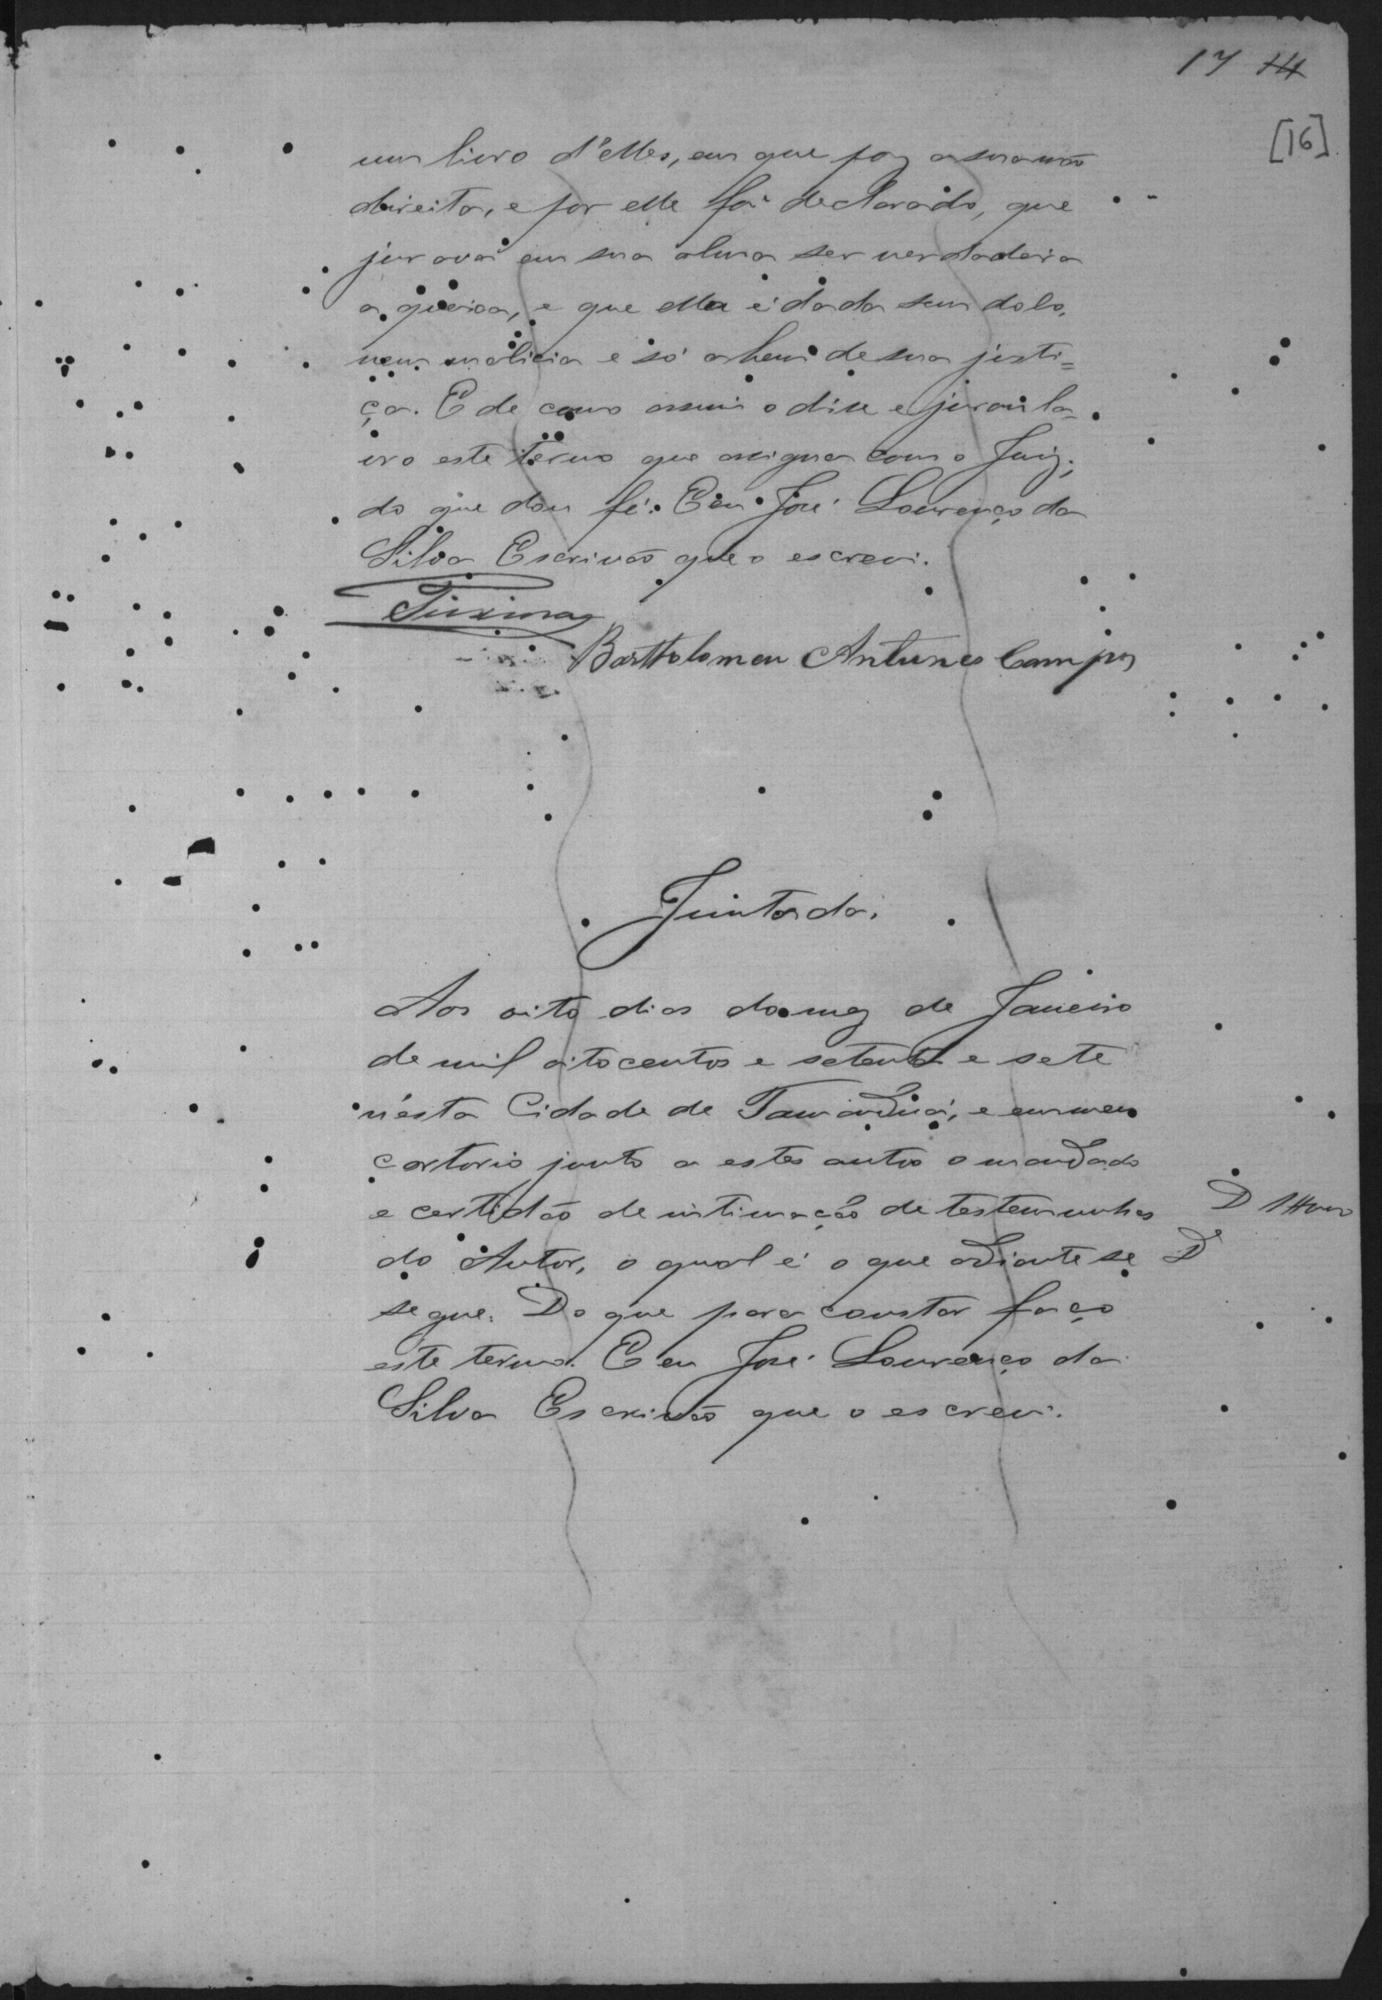 17 14
[16]
um livro d'elles, em que poz a sua mão
direita, e por elle foi declarado, que
jurava em sua alma ser verdadeira
a queixa, e que ella é dada sem dolo,
nem malicia e só a bem de sua justi=
ça. E de como assim o disse e jurou la-
vro este termo que assigna com o Juiz;
do que dou fé. E eu José Lourenço da
Silva Escrivão que o escrevi.
Bartholomeu Antunes Campos
Juntada.
Aos oito dias do mez de Janeiro
de mil oitocentos e setenta e sete
n'esta Cidade de Tamanduá, e em meu
cartorio junto a estes autos o mandado
e certidão de intimação de testemunhas
do Autor, o qual é o que adiante se
segue. Do que para constar faço
este termo. E eu José Lourenço da
Silva Escrivão que o escrevi.